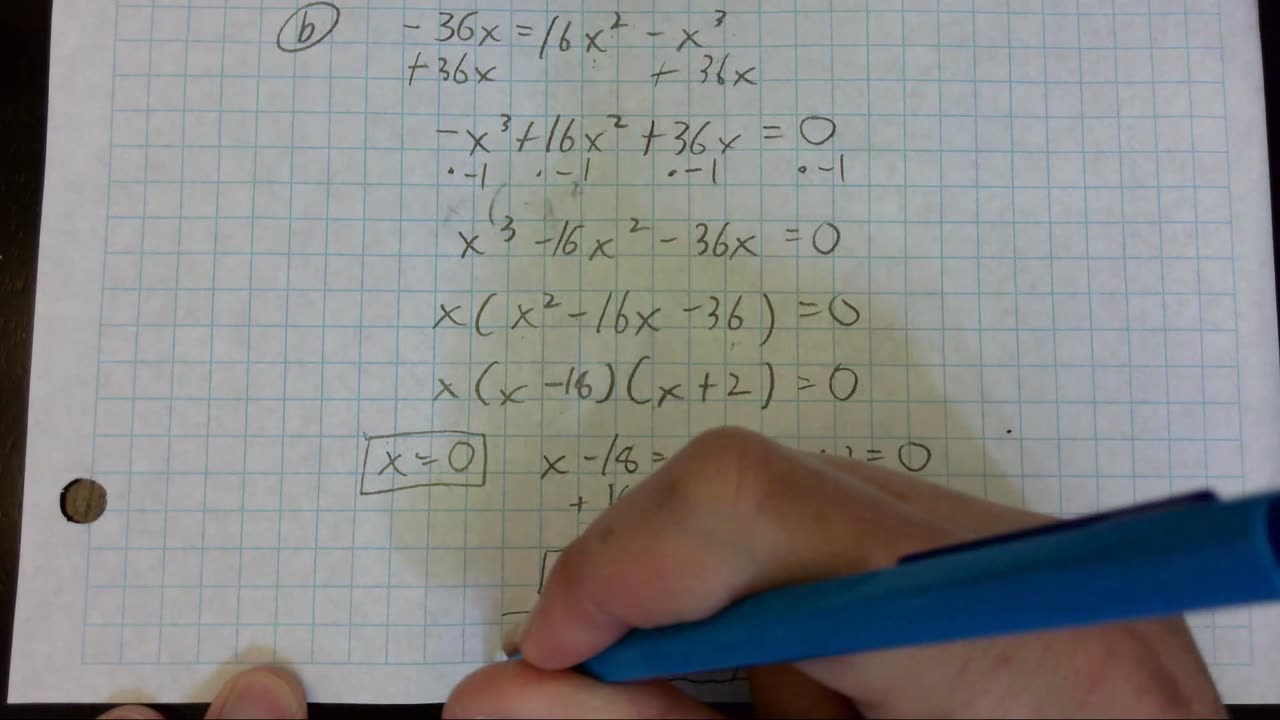 b
- 36x = 16x² - x³
+36x + 36x
-x³ + 16x² + 36x = 0
· -1 · -1 · -1 · -1
x³ - 16x² - 36x = 0
x ( x² - 16x - 36 ) = 0
x ( x - 18 ) ( x + 2 ) = 0
x = 0 x - 18 = = 0
+